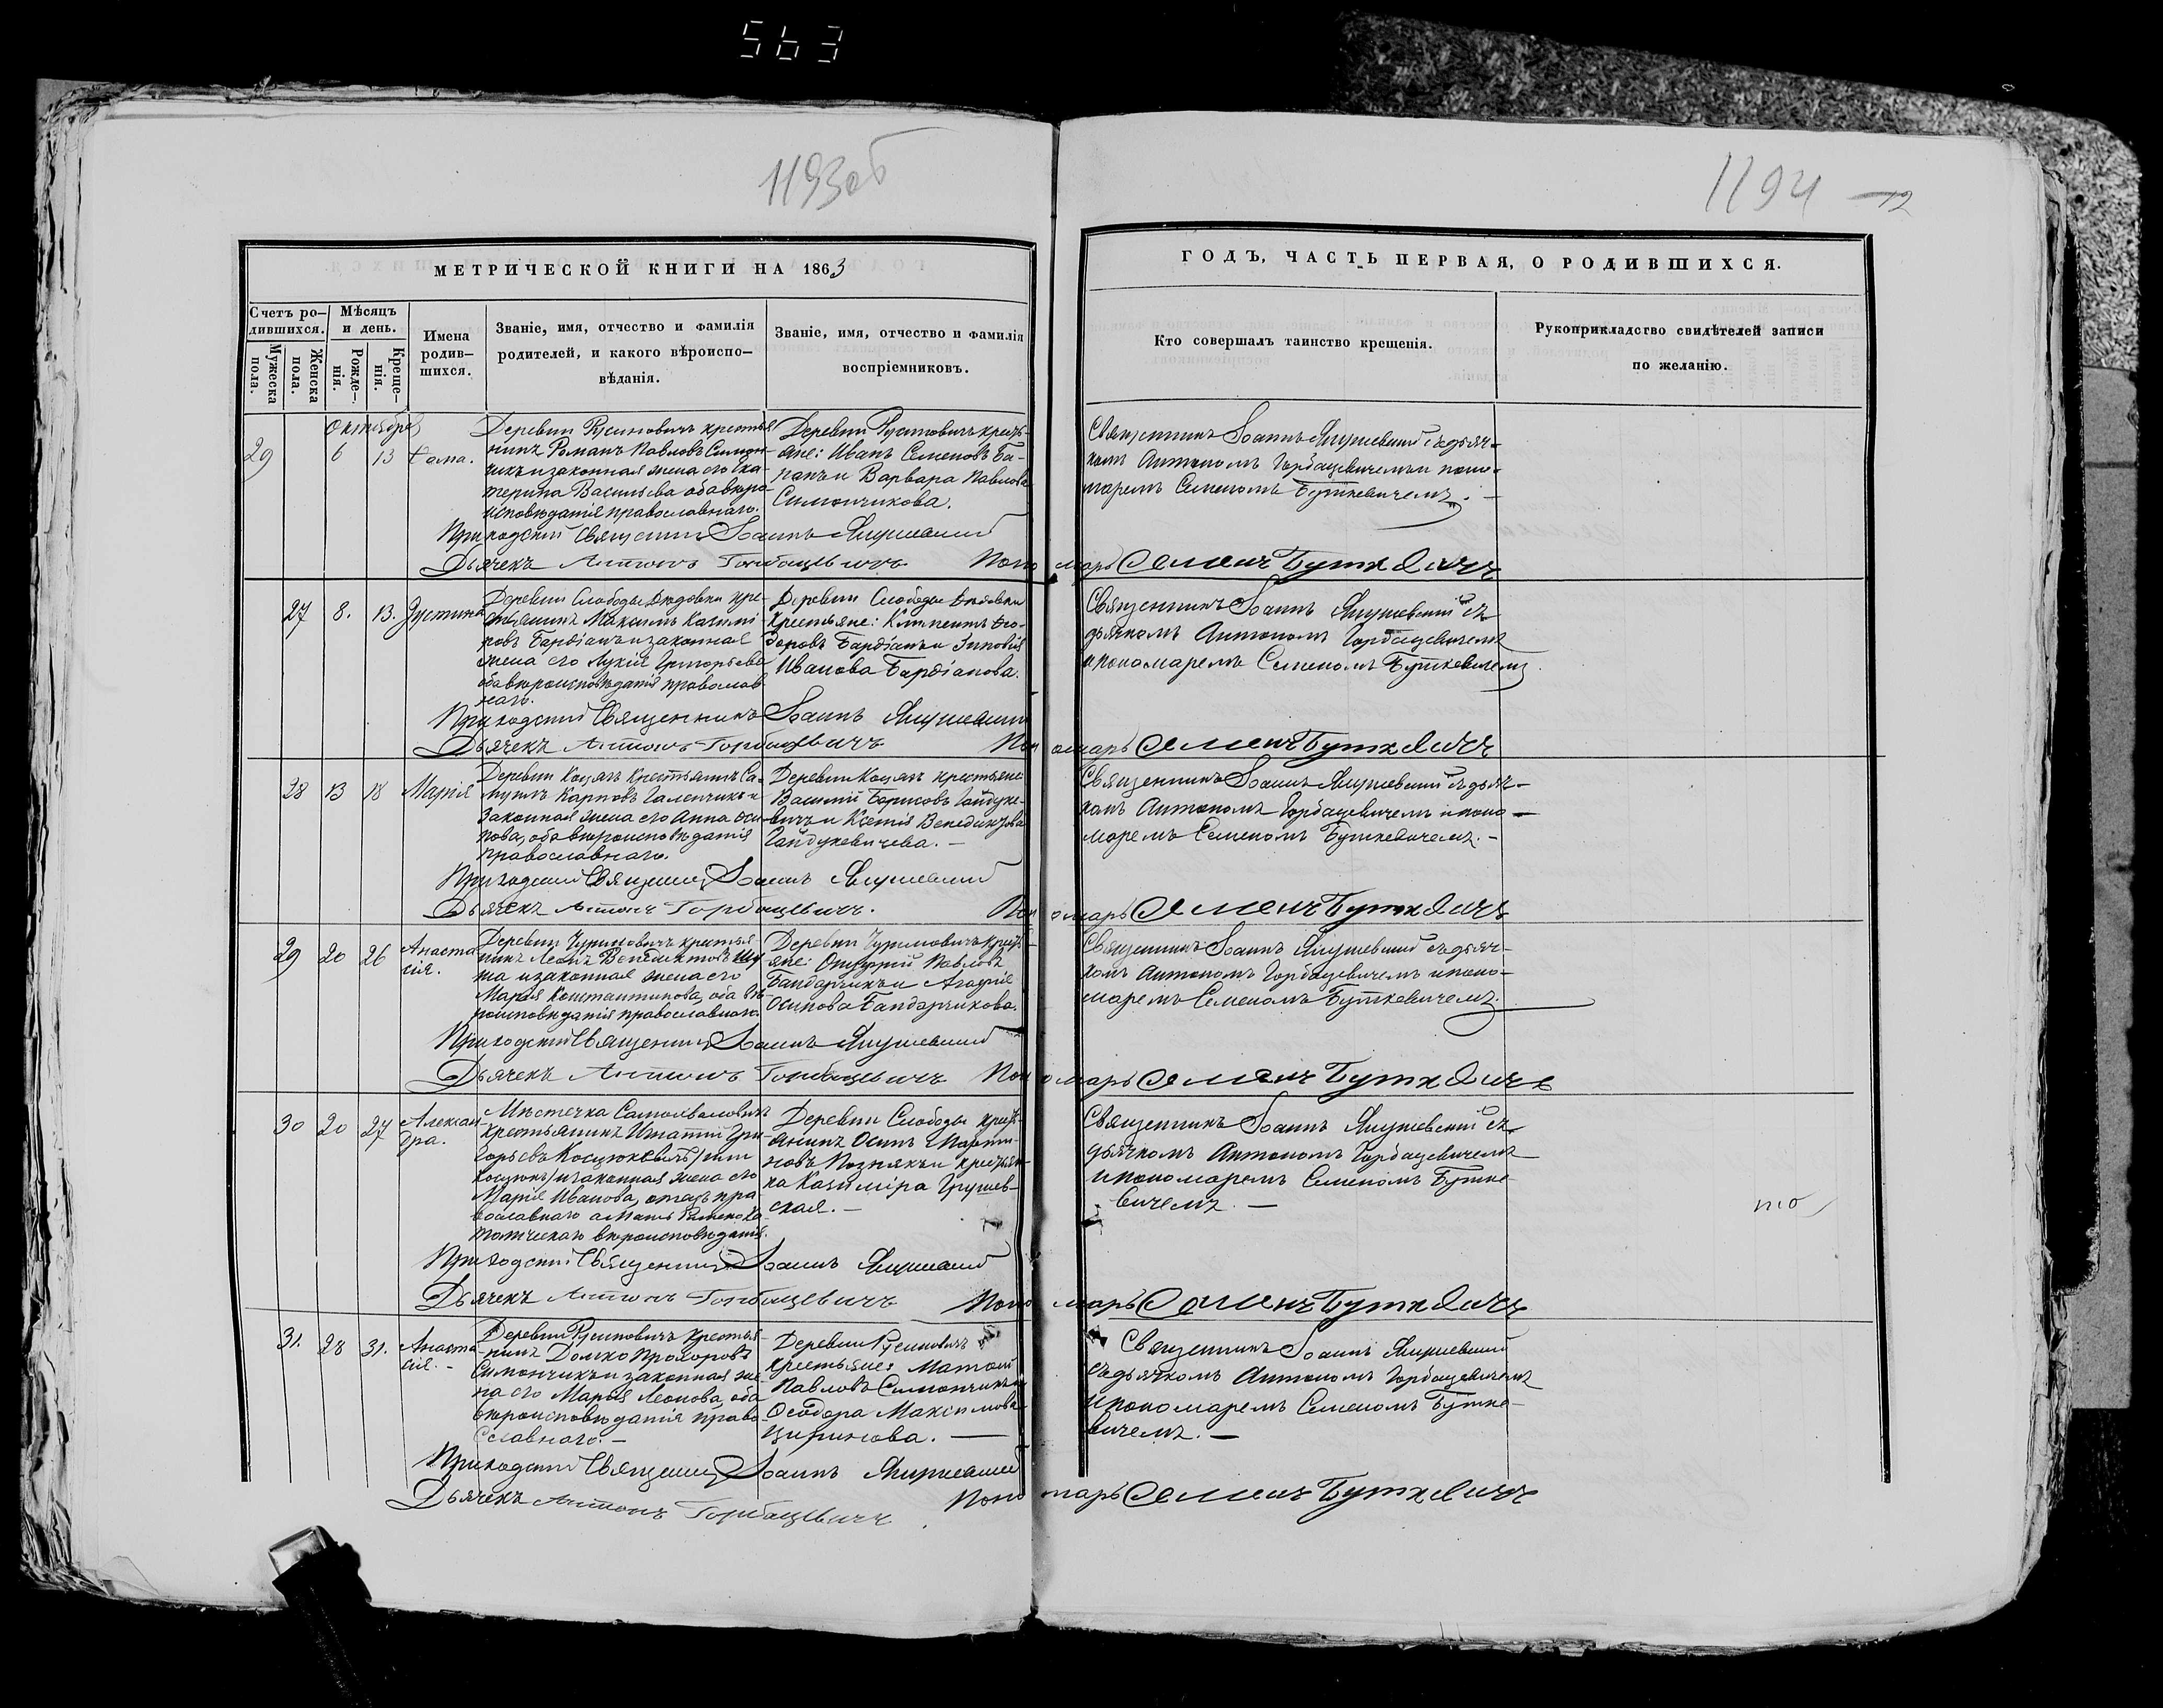 563
1193об
1194
12
МЕТРИЧЕСКОЙ КНИГИ НА 1863
ГОДЪ, ЧАСТЬ ПЕРВАЯ, О РОДИВШИХСЯ.
Счетъ ро-
дившихся.
Мужеска
пола.
Женска
пола.
Мѣсяцъ
и день.
Рожде-
нія.
Креще-
нія.
Имена
родив-
шихся.
Званіе, имя, отчество и фамилія
родителей, и какого вѣроиспо-
вѣданія.
Званіе, имя, отчество и фамилія
воспріемниковъ.
Кто совершалъ таинство крещенія.
Рукоприкладство свидѣтелей записи
по желанію.
Октября
29
6
13
Ѳома.
Деревни Русиновичъ крестья
нинъ Романъ Павловъ Симон
чикъ и законная жена его Ека-
терина Васильева оба вѣро
исповѣданія православнаго.
Деревни Русиновичъ кресть-
яне: Иванъ Семеновъ Ба-
и Варвара Павлова
Симончикова.
Священникъ Іоаннъ Янушевскій съ дьяч-
комъ Антономъ Горбацевичемъ и поно-
маремъ Семеномъ Буткевичемъ. -
Приходскій Священникъ Іоаннъ Янушевскій
Дьячекъ Антонъ Горбацевичъ Пономарь Семенъ Буткевичъ
27
8.
13.
Іустина
Деревни Слободы кре-
стьянинъ Максимъ Касті-
новъ Бардіанъ и законная
жена его Лукія Григорьева
оба вѣроисповѣданія православ
наго.
Деревни Слободы
крестьяне: Климентъ Ѳео-
доровъ Бардіанъ и Зиновія
Иванова Бардіанова.
Священникъ Іоаннъ Янушевскій съ
дьячкомъ Антономъ Горбацевичемъ
и пономаремъ Семеномъ Буткевичемъ.
Приходскій Священникъ Іоаннъ Янушевскій
Дьячекъ Антонъ Горбацевичъ Пономарь Семенъ Буткевичъ
28
13
18
Марія
Деревни Коцякъ Крестьянинъ Са-
муилъ Карповъ Галенчикъ и
законная жена его Анна Оси
пова, оба вѣроисповѣданія
православнаго.
Деревни Коцякъ крестьяне
Василій Борисовъ Гайдуке-
вичъ и Ксенія Венедиктова
Гайдукевичева. -
Священникъ Іоаннъ Янушевскій съ дьяч-
комъ Антономъ Горбацевичемъ и поно-
маремъ Семеномъ Буткевичемъ. -
Приходскій Священникъ Іоаннъ Янушевскій
Дьячекъ Антонъ Горбацевичъ. Пономарь Семенъ Буткевичъ
29
20
26
Анаста
сія.
Деревни Чуриловичъ крестья
нинъ Леонъ Венедиктовъ
и законная жена его
Марія Константинова, оба вѣ
роисповѣданія православнаго.
Деревни Чуриловичъ кресть-
яне: Онуфрій Павловъ
Бандарчикъ и Агафія
Осипова Бандарчикова.
Священникъ Іоаннъ Янушевскій съ дьяч-
комъ Антономъ Горбацевичемъ и поно-
маремъ Семеномъ Буткевичемъ.
Приходскій Священникъ Іоаннъ Янушевскій
Дьячекъ Антонъ Горбацевичъ Пономарь Семенъ Буткевичъ
30
20
27
Алексан
дра.
Мѣстечка Самохваловичъ
крестьянинъ Игнатій Гри
горьевъ Косцюкевичъ/или
Косцюкъ/ и законная жена его
Марія Иванова, отецъ пра
вославнаго а Мать Римско Ка
толическаго вѣроисповѣданія.
Деревни Слободы кресть-
янинъ Осипъ Марти-
новъ Познякъ и крестьян-
ка Казиміра Грушев-
ская. -
Священникъ Іоаннъ Янушевскій съ
дьячкомъ Антономъ Горбацевичемъ
и пономаремъ Семеномъ Бутке-
вичемъ. -
то
Приходскій Священникъ Іоаннъ Янушевскій
Дьячекъ Антонъ Горбацевичъ Пономарь Семенъ Буткевичъ
31.
28
31.
Анаста
сія. -
Деревни Русиновичъ Крестья
нинъ Домко Прохоровъ
Симончикъ и законная же-
на его Марія Леонова, оба
вѣроисповѣданія право
славнаго. -
Деревни Русиновичъ
крестьяне: Матвѣй
Павловъ Симончикъ и
Ѳеодора Максимова
Циринова. -
Священникъ Іоаннъ Янушевскій
съ дьячкомъ Антономъ Горбацевичемъ
и пономаремъ Семеномъ Бутке-
вичемъ. -
Приходскій Священникъ Іоаннъ Янушевскій
Дьячекъ Антонъ Горбацевичъ. Пономарь Семенъ Буткевичъ